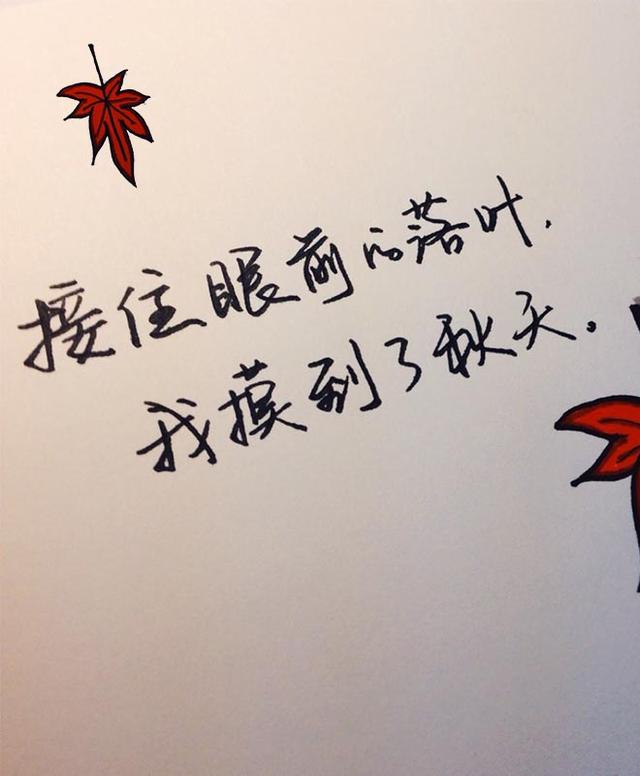 接住眼前的落叶,
我摸到了秋天。